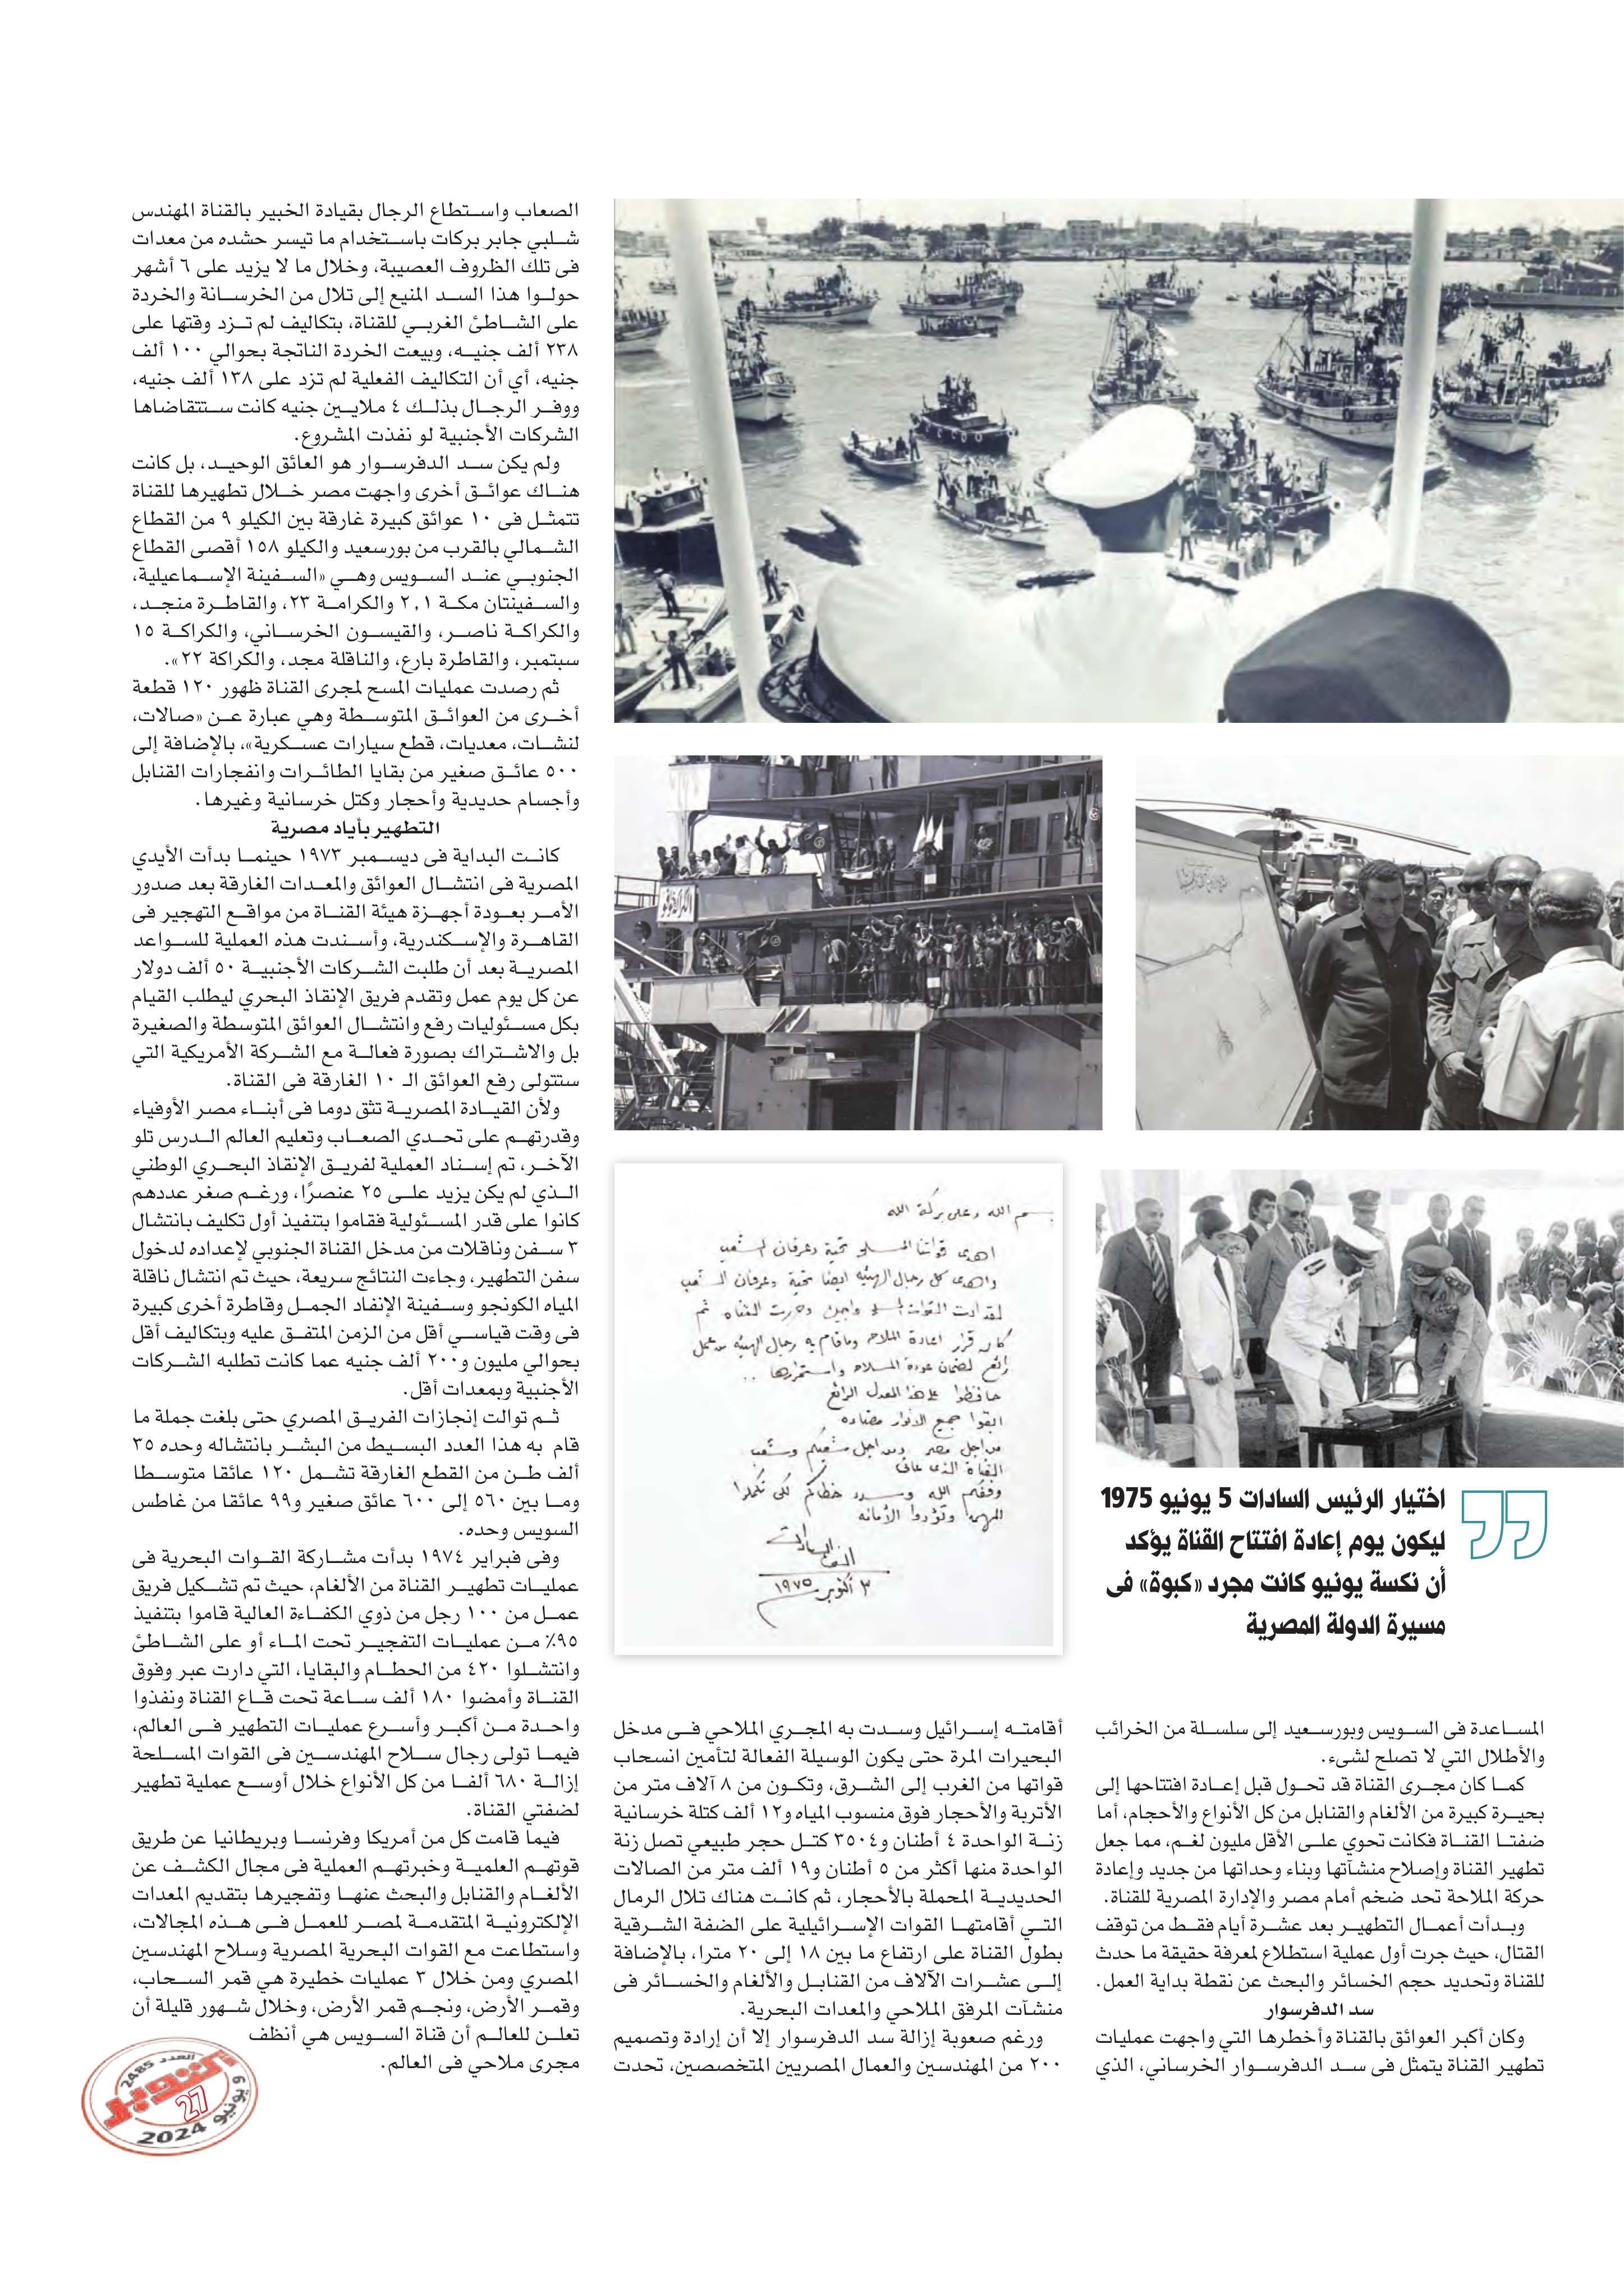 اختيار الرئيس السادات 5 يونيو 1975
ليكون يوم إعادة افتتاح القناة يؤكد
أن نكسة يونيو كانت مجرد «كبوة» فى
مسيرة الدولة المصرية
المساعدة فى السويس وبورسعيد إلى سلسلة من الخرائب
والأطلال التي لا تصلح لشىء.
كما كان مجرى القناة قد تحول قبل إعادة افتتاحها إلى
بحيرة كبيرة من الألغام والقنابل من كل الأنواع والأحجام، أما
ضفتا القناة فكانت تحوي على الأقل مليون لغم، مما جعل
تطهير القناة وإصلاح منشآتها وبناء وحداتها من جديد وإعادة
حركة الملاحة تحد ضخم أمام مصر والإدارة المصرية للقناة.
وبدأت أعمال التطهير بعد عشرة أيام فقط من توقف
القتال، حيث جرت أول عملية استطلاع لمعرفة حقيقة ما حدث
للقناة وتحديد حجم الخسائر والبحث عن نقطة بداية العمل.
سد الدفرسوار
وكان أكبر العوائق بالقناة وأخطرها التي واجهت عمليات
تطهير القناة يتمثل فى سد الدفرسوار الخرساني، الذي
بسم الله وعلى بركة الله
اهدى قواتنا المسلحة تحية وعرفان الشعب
واهدى كل رجال الهيئه ايضا تحية وعرفان الشعب
لقد ادت القوات المسلحة واجبها وحررت القناه ثم
كان قرار اعادة الملاحه وماقام به رجال الهيئه من عمل
رائع لضمان عودة الملاحه واستمرارها ..
حافظوا على هذا المعدل الرائع
ابقوا جميع الانوار مضاءه
من اجل مصر ومن اجل شعبكم وشعب
القناة الذى عانى
وفقكم الله وسدد خطاكم لكى تكملوا
المهمة وتؤدوا الأمانه
أنور السادات
٣ أكتوبر ١٩٧٥
أقامته إسرائيل وسدت به المجري الملاحي فى مدخل
البحيرات المرة حتى يكون الوسيلة الفعالة لتأمين انسحاب
قواتها من الغرب إلى الشرق، وتكون من ٨ آلاف متر من
الأتربة والأحجار فوق منسوب المياه و١٢ ألف كتلة خرسانية
زنة الواحدة ٤ أطنان و٣٥٠٤ كتل حجر طبيعي تصل زنة
الواحدة منها أكثر من ٥ أطنان و١٩ ألف متر من الصالات
الحديدية المحملة بالأحجار، ثم كانت هناك تلال الرمال
التي أقامتها القوات الإسرائيلية على الضفة الشرقية
بطول القناة على ارتفاع ما بين ١٨ إلى ٢٠ مترا، بالإضافة
إلى عشرات الآلاف من القنابل والألغام والخسائر فى
منشآت المرفق الملاحي والمعدات البحرية.
ورغم صعوبة إزالة سد الدفرسوار إلا أن إرادة وتصميم
٢٠٠ من المهندسين والعمال المصريين المتخصصين، تحدت
الصعاب واستطاع الرجال بقيادة الخبير بالقناة المهندس
شلبي جابر بركات باستخدام ما تيسر حشده من معدات
فى تلك الظروف العصيبة، وخلال ما لا يزيد على ٦ أشهر
حولوا هذا السد المنيع إلى تلال من الخرسانة والخردة
على الشاطئ الغربي للقناة، بتكاليف لم تزد وقتها على
٢٣٨ ألف جنيه، وبيعت الخردة الناتجة بحوالي ١٠٠ ألف
جنيه، أي أن التكاليف الفعلية لم تزد على ١٣٨ ألف جنيه،
ووفر الرجال بذلك ٤ ملايين جنيه كانت ستتقاضاها
الشركات الأجنبية لو نفذت المشروع.
ولم يكن سد الدفرسوار هو العائق الوحيد، بل كانت
هناك عوائق أخرى واجهت مصر خلال تطهيرها للقناة
تتمثل فى ١٠ عوائق كبيرة غارقة بين الكيلو ٩ من القطاع
الشمالي بالقرب من بورسعيد والكيلو ١٥٨ أقصى القطاع
الجنوبي عند السويس وهي «السفينة الإسماعيلية،
والسفينتان مكة ٢,١ والكرامة ٢٣، والقاطرة منجد،
والكراكة ناصر، والقيسون الخرساني، والكراكة ١٥
سبتمبر، والقاطرة بارع، والناقلة مجد، والكراكة ٢٢».
ثم رصدت عمليات المسح لمجرى القناة ظهور ١٢٠ قطعة
أخرى من العوائق المتوسطة وهي عبارة عن «صالات،
لنشات، معديات، قطع سيارات عسكرية»، بالإضافة إلى
٥٠٠ عائق صغير من بقايا الطائرات وانفجارات القنابل
وأجسام حديدية وأحجار وكتل خرسانية وغيرها.
التطهير بأياد مصرية
كانت البداية فى ديسمبر ١٩٧٣ حينما بدأت الأيدي
المصرية فى انتشال العوائق والمعدات الغارقة بعد صدور
الأمر بعودة أجهزة هيئة القناة من مواقع التهجير فى
القاهرة والإسكندرية، وأسندت هذه العملية للسواعد
المصرية بعد أن طلبت الشركات الأجنبية ٥٠ ألف دولار
عن كل يوم عمل وتقدم فريق الإنقاذ البحري ليطلب القيام
بكل مسئوليات رفع وانتشال العوائق المتوسطة والصغيرة
بل والاشتراك بصورة فعالة مع الشركة الأمريكية التي
ستتولى رفع العوائق الـ ١٠ الغارقة فى القناة.
ولأن القيادة المصرية تثق دوما فى أبناء مصر الأوفياء
وقدرتهم على تحدي الصعاب وتعليم العالم الدرس تلو
الآخر، تم إسناد العملية لفريق الإنقاذ البحري الوطني
الذي لم يكن يزيد على ٢٥ عنصرًا، ورغم صغر عددهم
كانوا على قدر المسئولية فقاموا بتنفيذ أول تكليف بانتشال
٣ سفن وناقلات من مدخل القناة الجنوبي لإعداده لدخول
سفن التطهير، وجاءت النتائج سريعة، حيث تم انتشال ناقلة
المياه الكونجو وسفينة الإنفاد الجمل وقاطرة أخرى كبيرة
فى وقت قياسي أقل من الزمن المتفق عليه وبتكاليف أقل
بحوالي مليون و٢٠٠ ألف جنيه عما كانت تطلبه الشركات
الأجنبية وبمعدات أقل.
ثم توالت إنجازات الفريق المصري حتى بلغت جملة ما
قام به هذا العدد البسيط من البشر بانتشاله وحده ٣٥
ألف طن من القطع الغارقة تشمل ١٢٠ عائقا متوسطا
وما بين ٥٦٠ إلى ٦٠٠ عائق صغير و٩٩ عائقا من غاطس
السويس وحده.
وفى فبراير ١٩٧٤ بدأت مشاركة القوات البحرية فى
عمليات تطهير القناة من الألغام، حيث تم تشكيل فريق
عمل من ١٠٠ رجل من ذوي الكفاءة العالية قاموا بتنفيذ
٩٥٪ من عمليات التفجير تحت الماء أو على الشاطئ
وانتشلوا ٤٢٠ من الحطام والبقايا، التي دارت عبر وفوق
القناة وأمضوا ١٨٠ ألف ساعة تحت قاع القناة ونفذوا
واحدة من أكبر وأسرع عمليات التطهير فى العالم،
فيما تولى رجال سلاح المهندسين فى القوات المسلحة
إزالة ٦٨٠ ألفا من كل الأنواع خلال أوسع عملية تطهير
لضفتي القناة.
فيما قامت كل من أمريكا وفرنسا وبريطانيا عن طريق
قوتهم العلمية وخبرتهم العملية فى مجال الكشف عن
الألغام والقنابل والبحث عنها وتفجيرها بتقديم المعدات
الإلكترونية المتقدمة لمصر للعمل فى هذه المجالات،
واستطاعت مع القوات البحرية المصرية وسلاح المهندسين
المصري ومن خلال ٣ عمليات خطيرة هي قمر السحاب،
وقمر الأرض، ونجم قمر الأرض، وخلال شهور قليلة أن
تعلن للعالم أن قناة السويس هي أنظف
مجرى ملاحي فى العالم.
العدد 2485
أكتوبر
27
9 يونيو 2024